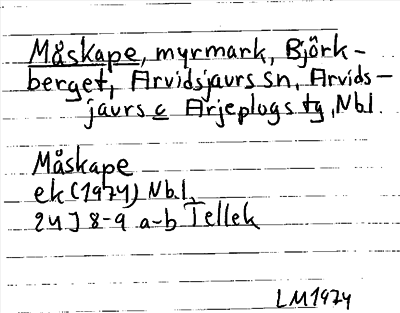 Måskape, myrmark, Björk-
berget, Arvidsjaurs sn, Arvids-
jaurs c Arjeplogs tg, Nbl.
Måskape
ek (1974) Nbl.
24J 8-9 a-b Tellek
LM1974